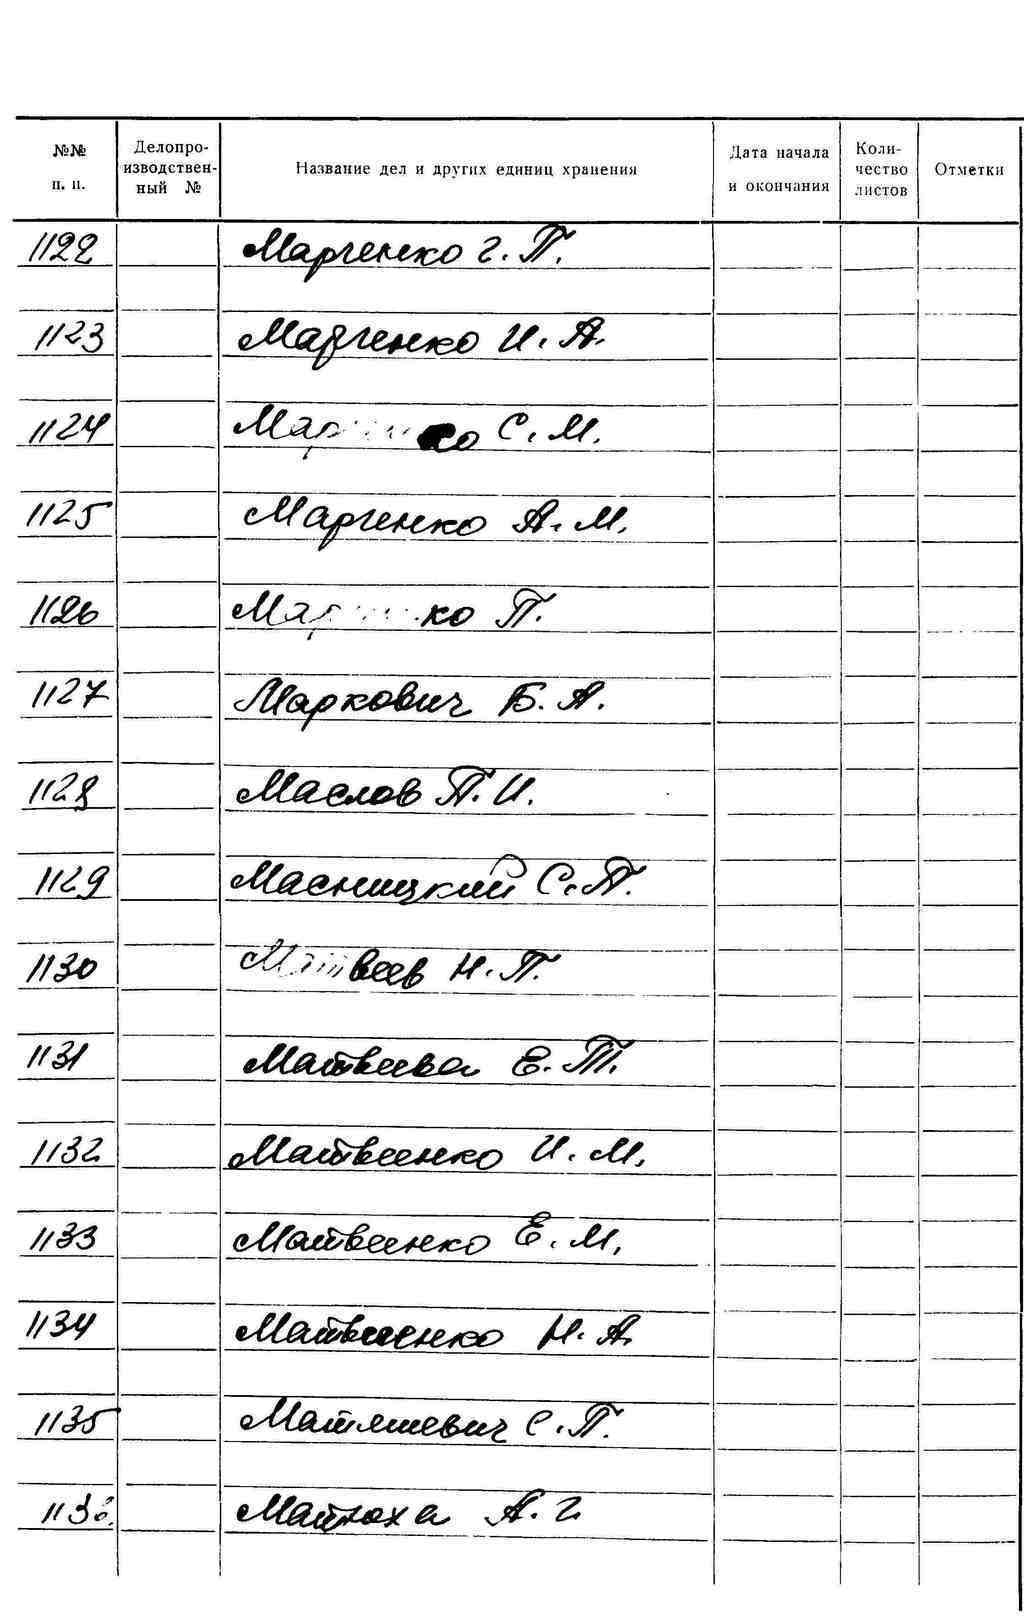 №№ п. п. Делопро-изводствен-ный № Название дел и других единиц хранения Дата начала и окончания Коли-чество листов Отметки
1122 Марченко Г. П.
1123 Марченко И. А.
1124 С. М.
1125 Марченко А. М.
1126 П.
1127 Маркович Б. А.
1128 Маслов П. И.
1129 Масницкий С. П.
1130 Матвеев Н. П.
1131 Матвеева Е. Т.
1132 Матвеенко И. М.
1133 Матвеенко Е. М.
1134 Матвеенко Н. А.
1135 Матяшевич С. П.
1136. Матюха А. Г.